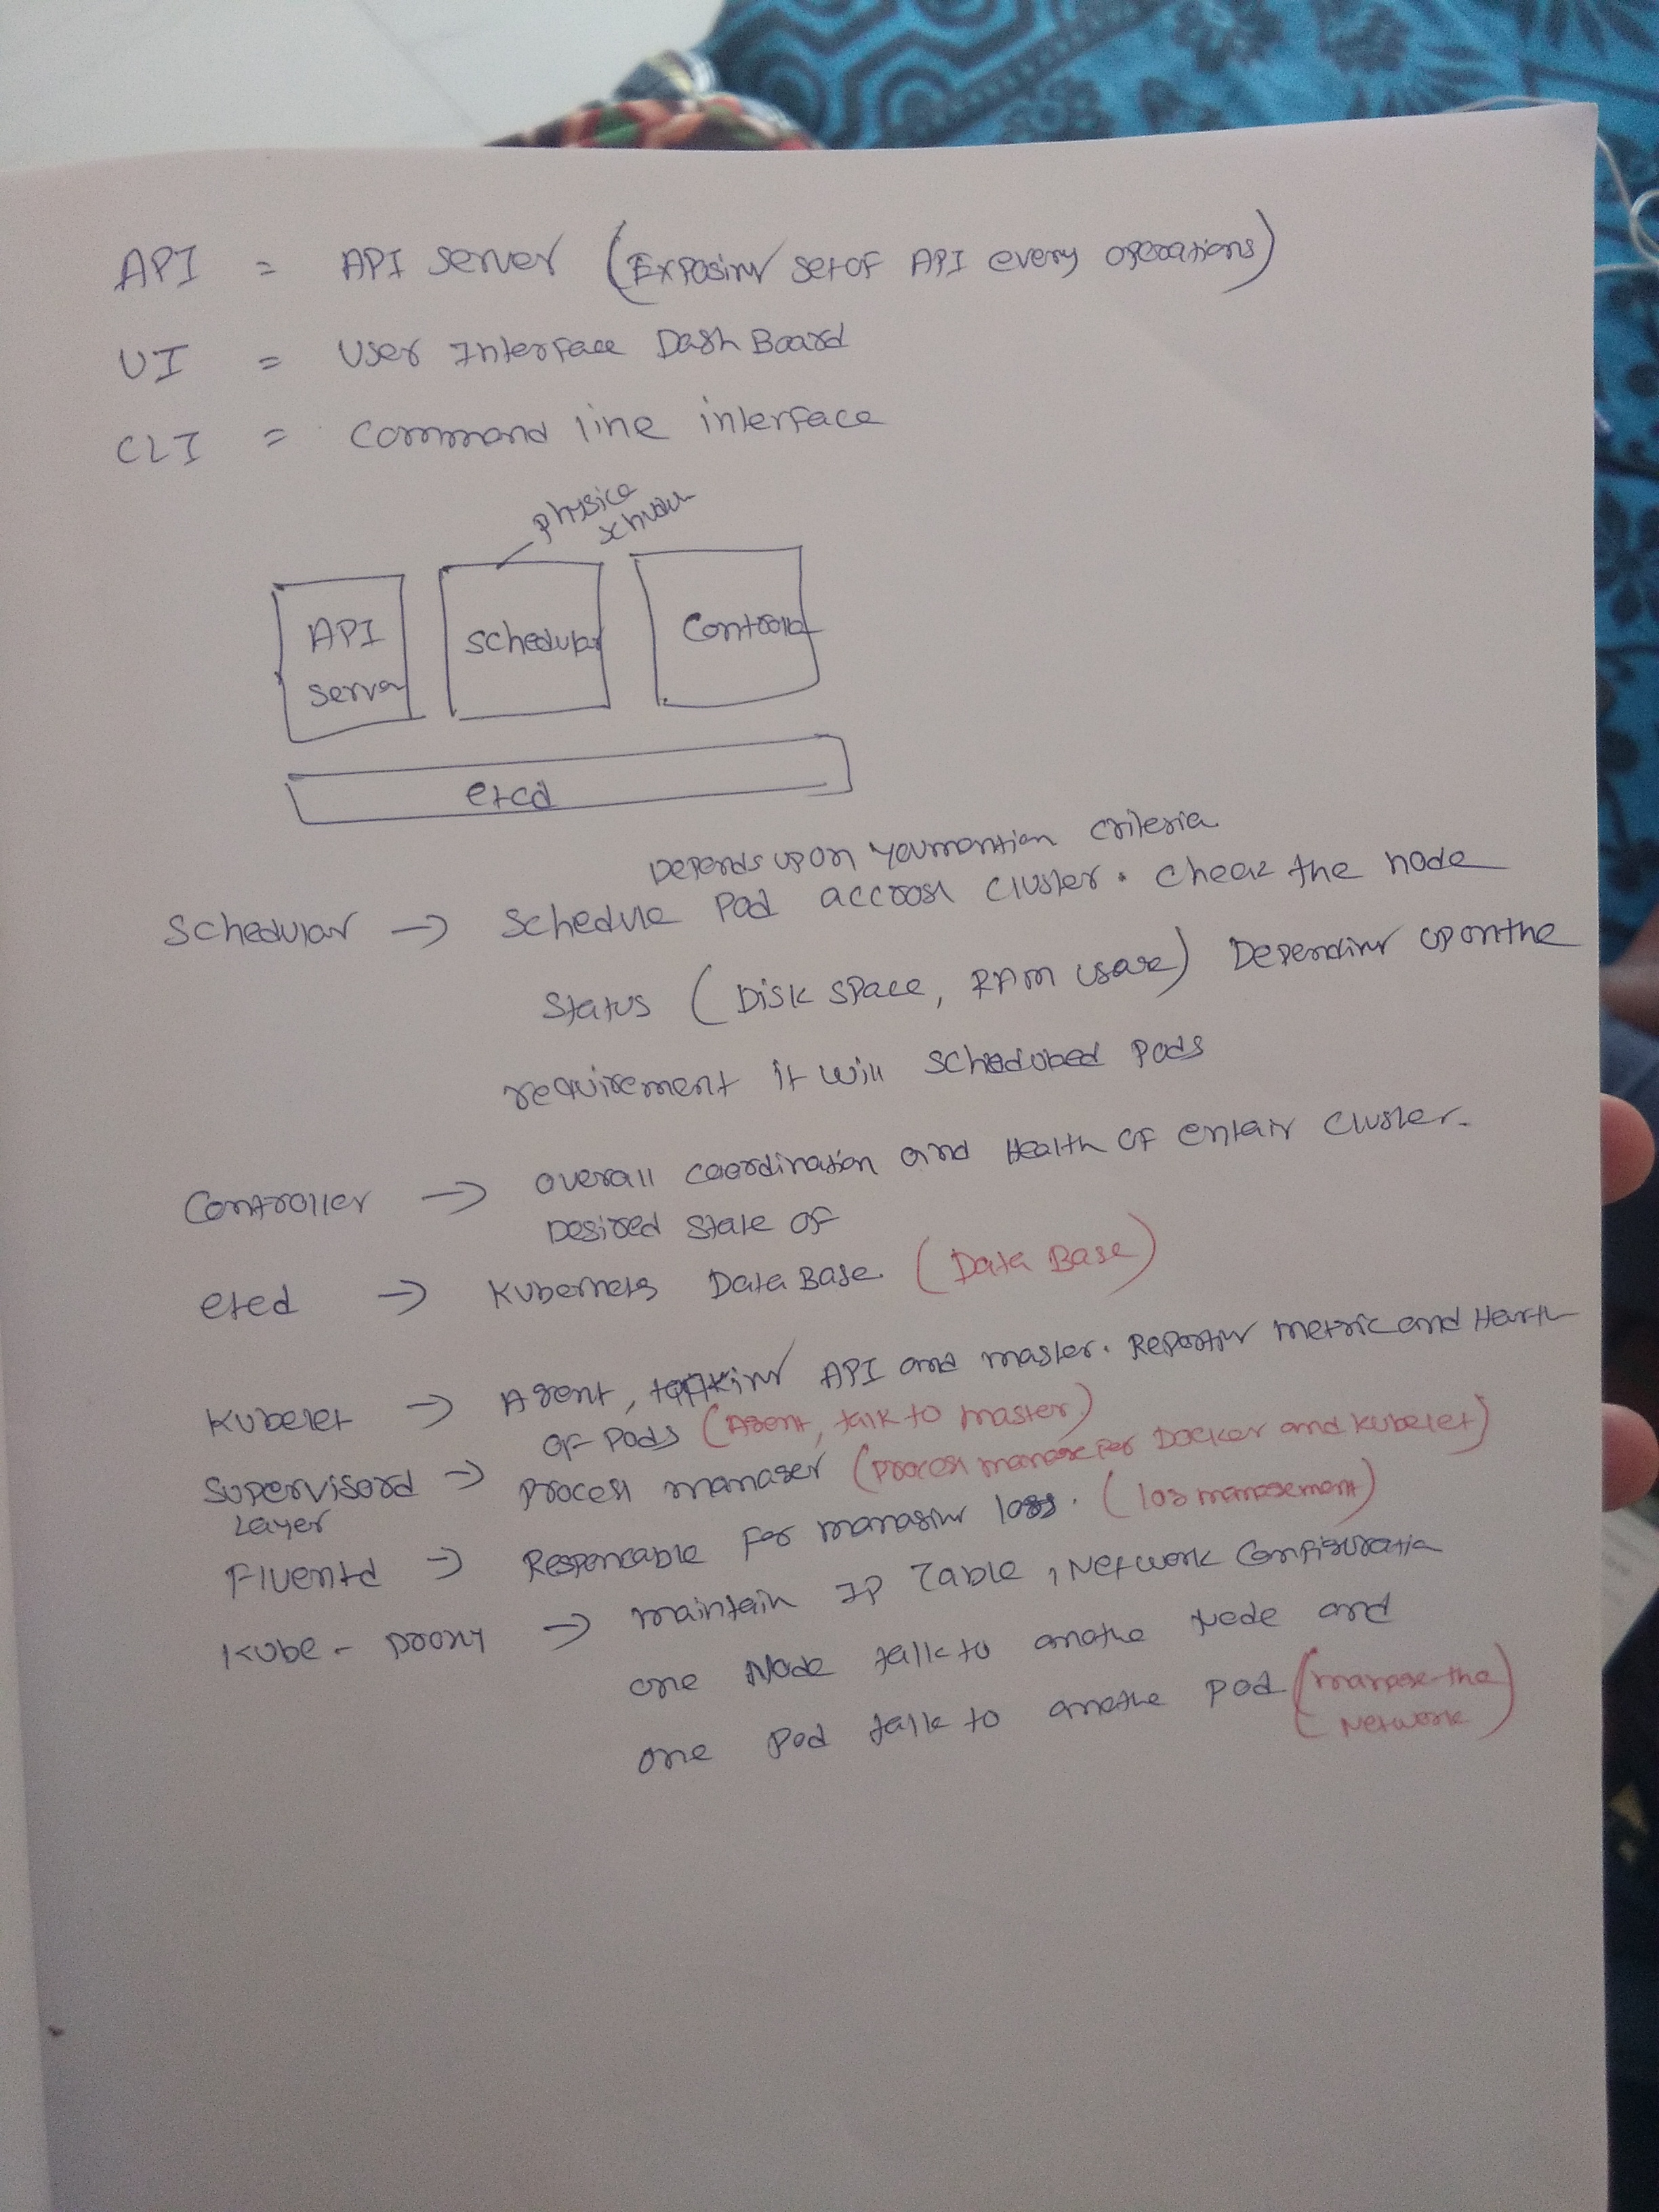 API = API server (Exposing set of API every operations)
UI = User Interface Dash Board
CLI = Command line interface
physica
API server
Schedular
Controller
etcd
Depends upon you mention criteria
Schedular → Schedule Pod accross cluster. Check the node
Status (Disk space, RAM usage) Depending upon the
requirement it will scheduled pods
Controller → overall coordination and Health of entair cluster.
Desired state of
etcd → Kubernets Data Base (Data Base)
Kubelet → Agent, talking API and master. Reporting metric and Health
of Pods (Agent, talk to master)
Supervisord → Process manager (process manage for Docker and Kubelet)
Layer
Fluentd → Responcable for managing logs. (log management)
Kube - proxy → maintain IP Table, Network Configuration
one Node talk to anothe Node and
one Pod talk to anothe Pod (manage the
Network)